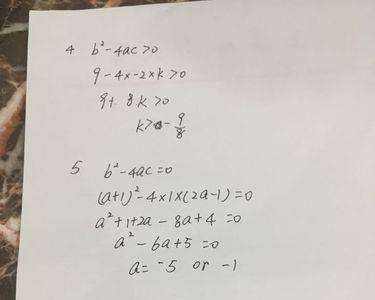 4 b²-4ac>0
9-4x-2xk>0
9+ 8k>0
k>-9/8
5 b²-4ac=0
(a+1)²-4×1×(2a-1)=0
a²+1+2a-8a+4=0
a²-6a+5=0
a=-5 or -1